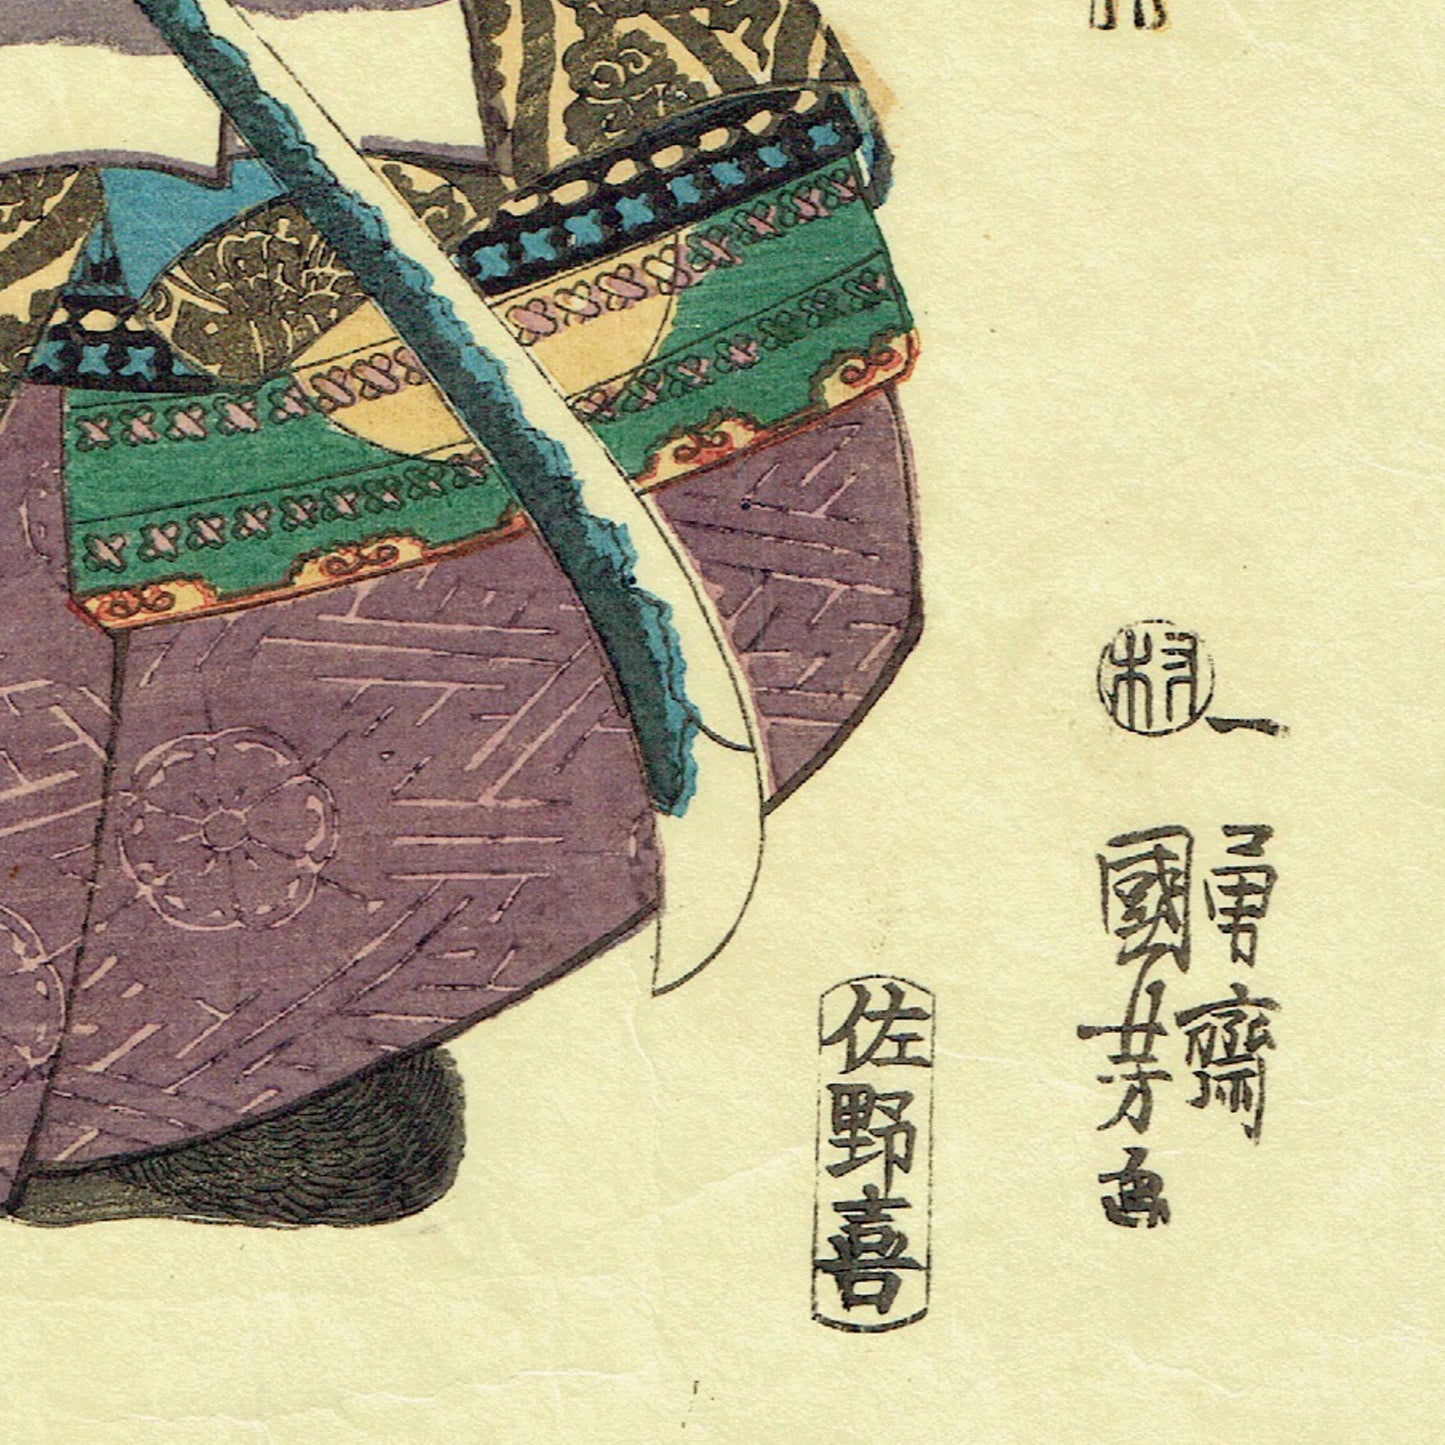 村
一勇齋
國芳画
佐野喜